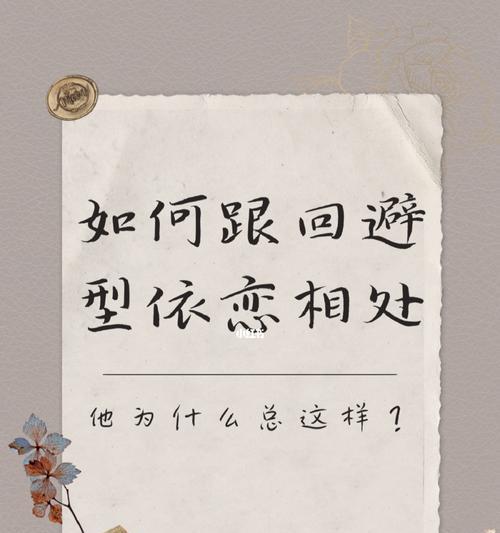 如何跟回避
型依恋相处
小红书
他为什么总这样？